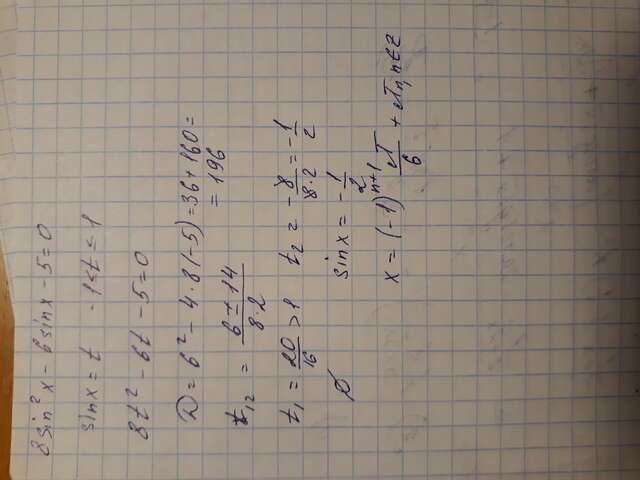 8sin²x - 6sinx - 5 = 0
sinx = t   -1 ≤ t ≤ 1
8t² - 6t - 5 = 0
D = 6² - 4·8(-5) = 36 + 160 =
= 196
t₁₂ = (6 ± 14)/(8·2)
t₁ = 20/16 > 1   t₂ = -8/(8·2) = -1/2
∅   sinx = -1/2
x = (-1)ⁿ⁺¹ π/6 + πn, n∈Z